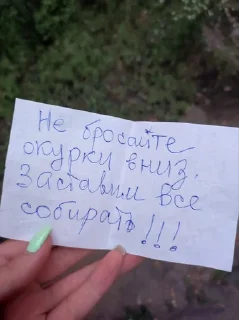 Не бросайте
окурки вниз.
Заставим все
собирать!!!